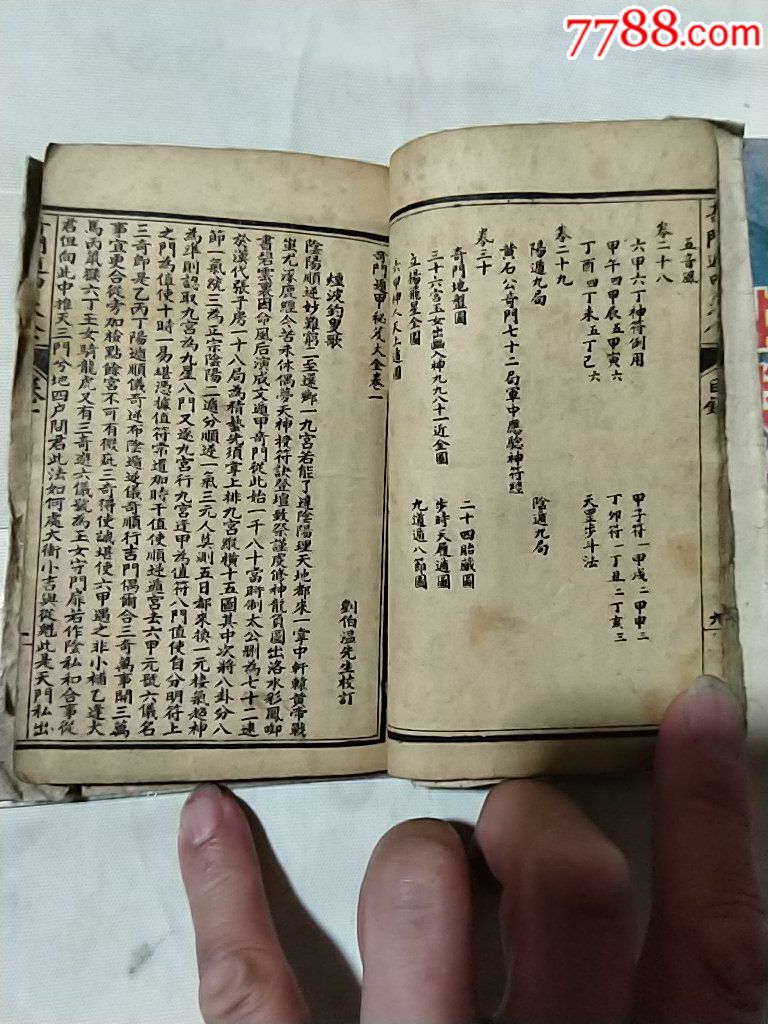 7788.com
五音風
卷二十八
六甲六丁神符例用
甲子符一甲戌二甲申三
甲午四甲辰五甲寅六
丁卯符一丁丑二丁亥三
丁酉四丁未五丁己六
天罡步斗法
卷二十九
陽遁九局
陰遁九局
黃石公奇門七十二局軍中應驗神符經
卷三十
奇門地盤圖
二十四胎藏圖
三十六宮玉女出凶入神九九八十一近全圖
步時天履遁圖
立楊龍星全圖
九道遁八節圖
六甲神人天上遁圖
目錄
九
奇門遁甲秘笈大全卷一
劉伯温先生校訂
煙波釣叟歌
陰陽順逆妙難窮二至還鄉一九宮若能了達陰陽理天地都來一掌中軒轅黃帝戰
蚩尤涿鹿經今苦未休偶夢天神授符訣登壇致祭謹虔修神龍負圖出洛水彩鳳啣
書碧雲裏因命風后演成文遁甲奇門從此始一千八十當時制太公刪為七十二逮
於漢代張子房一十八局為精藝先須掌上排九宮縱橫十五圖其中次將八卦分八
節一氣號三為正宗陰陽二遁分順逆一氣三元人莫測五日都來換一元接氣超神
為準則認取九宮為九星八門又逐九宮行九宮逢甲為值符八門值使自分明符上
之門為值使十時一易堪憑據值符常遣加時干值使順逆遁宮去六甲元號六儀名
三奇即是乙丙丁陽遁順儀奇逆布陰遁逆儀奇順行吉門偶爾合三奇萬事開三萬
事宜更合從旁加檢點餘宮不可有微疵三奇得使誠堪使六甲遇之非小補乙逢犬
馬丙鼠猴六丁玉女騎龍虎又有三奇遊六儀號為玉女守門扉若作陰私和合事從
君但向此中推天三門兮地四户問君此法如何處太衝小吉與從魁此是天門私出